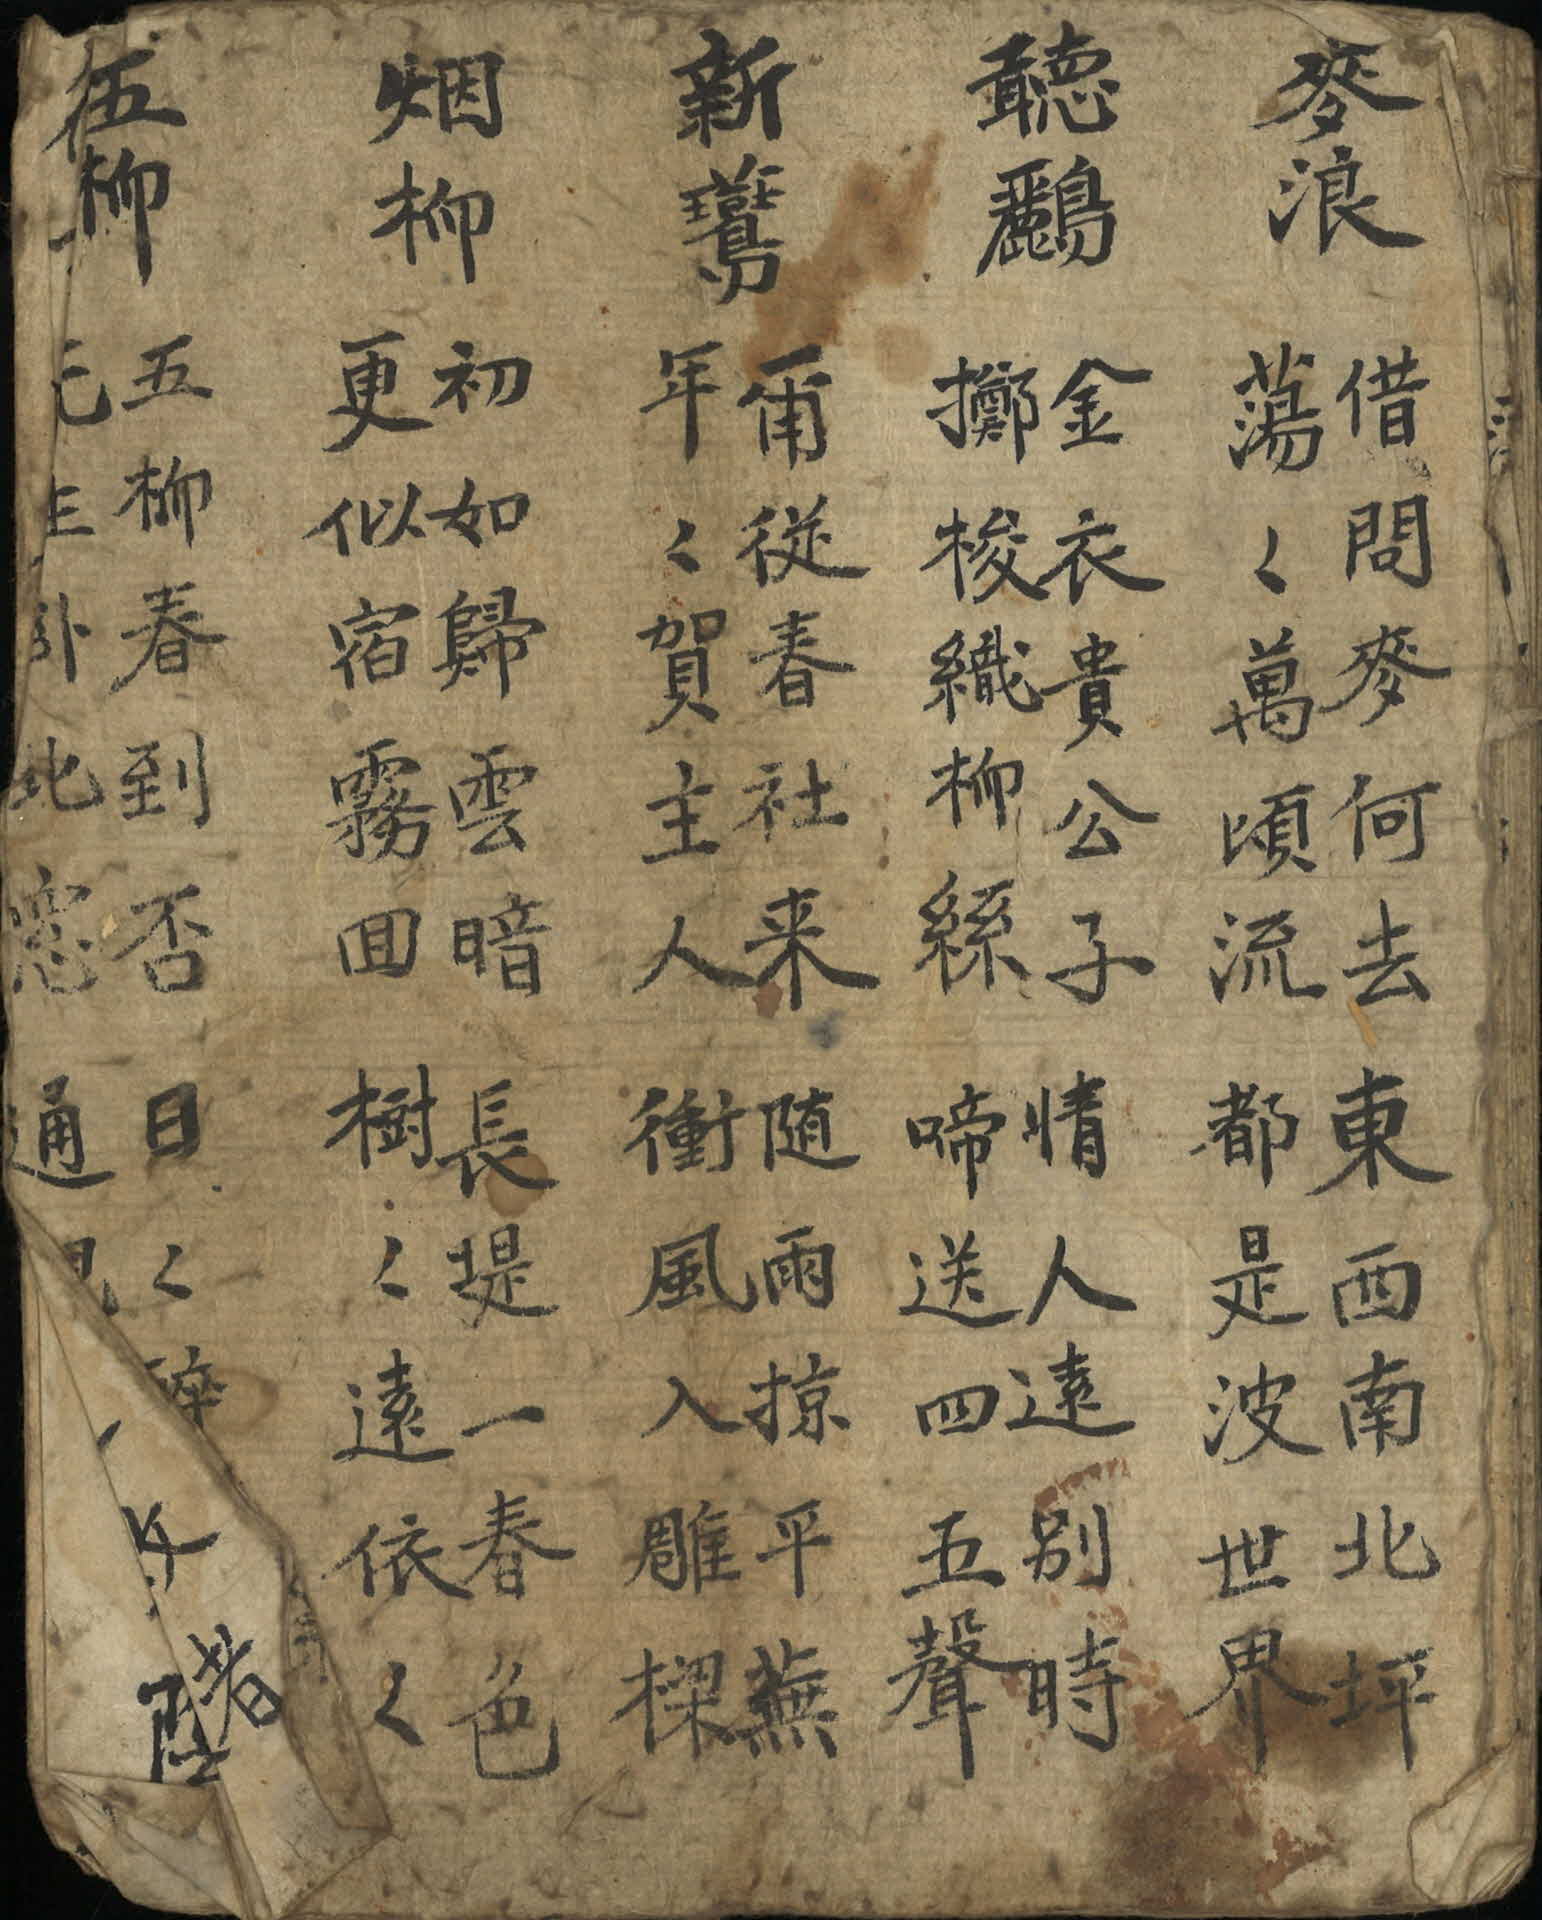 麥浪
借問麥何去東西南北坪
蕩々萬頃流都是波世界
聽鸝
金衣貴公子情人遠別時
擲梭織柳絲啼送四五聲
新鷰
甭從春社来随雨掠平蕪
年々賀主人衝風入雕樑
烟柳
初如歸雲暗長堤一春色
更似宿霧囬樹々遠依々
伍柳
五柳春到否日々醉
元生卧北窓通